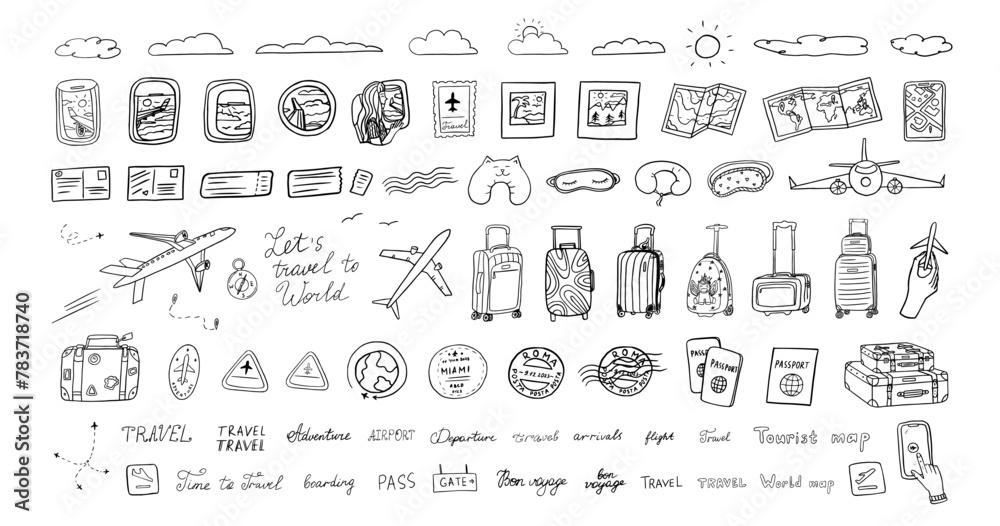 Travel
Let's
travel to
World
N
E
S
W
ADVENTURE
MIAMI
ROMA
9.12.2023
POSTA POSTA
ROMA
POSTA
PASSPORT
PASSPORT
TRAVEL
TRAVEL
TRAVEL
Adventure
AIRPORT
Departure
travel
arrivals
flight
Travel
Tourist map
Time to Travel
boarding
PASS
GATE→
Bon voyage
bon
voyage
TRAVEL
TRAVEL
World map
Adobe Stock | #783718740
Adobe Stock